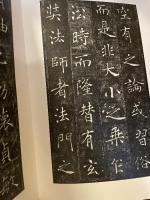 空有之論或習俗
而是非大小之乘乍
沿時而隆替有玄
奘法師者法門之
也幼懷貞敏